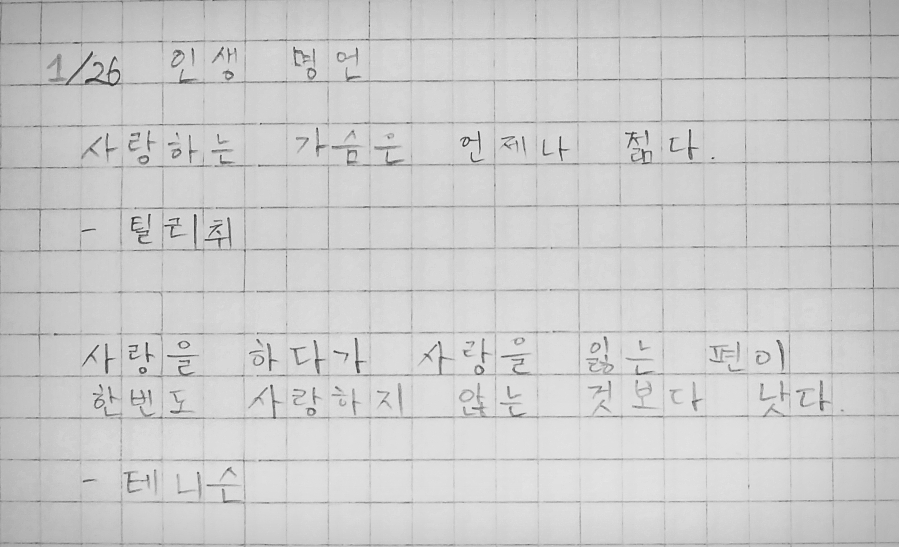 1/26 인생 명언
사랑하는 가슴은 언제나 젊다.
- 틸리취
사랑을 하다가 사랑을 잃는 편이
한번도 사랑하지 않는 것보다 낫다.
- 테니슨